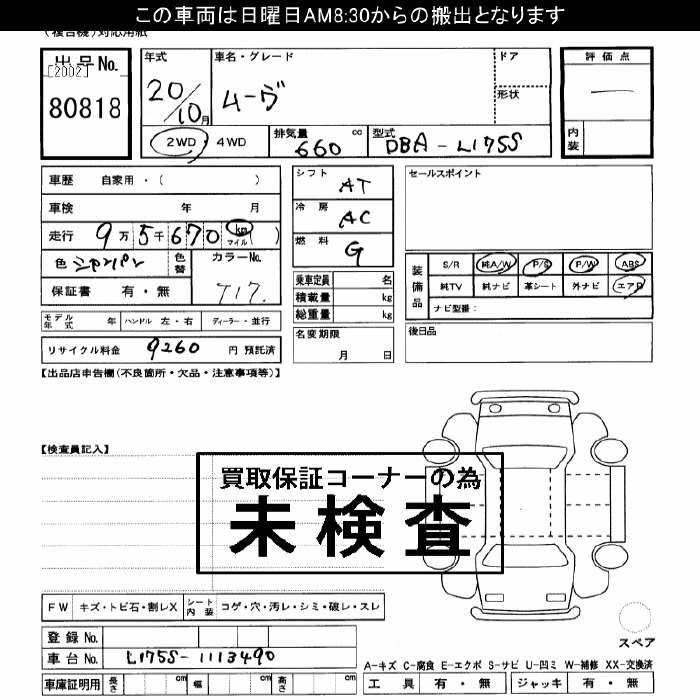 この車両は日曜日AM8:30からの搬出となります
(複合機)対応用紙
出品No.
[2002]
80818
年式
20/10月
車名・グレード
ムーヴ
ドア
形状
評価点
—
内装
2WD・4WD
排気量
660
cc
型式
DBA-L175S
車歴 自家用・( )
車検 年 月
走行 9万5千670 km マイル ( )
色 シャンパン
色替
カラーNo.
T17.
保証書 有・無
シフト
AT
冷房
AC
燃料
G
乗車定員 名
積載量 kg
総重量 kg
名変期限
月 日
セールスポイント
装備品
S/R 純A/W P/S P/W ABS
純TV 純ナビ 革シート 外ナビ エアB
ナビ型番:
後日品
モデル年式 年
ハンドル 左・右
ディーラー・並行
リサイクル料金 9260 円 預託済
【出品店申告欄(不良箇所・欠品・注意事項等)】
【検査員記入】
買取保証コーナーの為
未検査
FW キズ・トビ石・割レX
シート内装 コゲ・穴・汚レ・シミ・破レ・スレ
スペア
登録No.
車台No. L175S-1113490
車庫証明用 長さ cm 幅 cm 高さ cm
A-キズ C-腐食 E-エクボ S-サビ U-凹ミ W-補修 XX-交換済
工具 有・無 ジャッキ 有・無